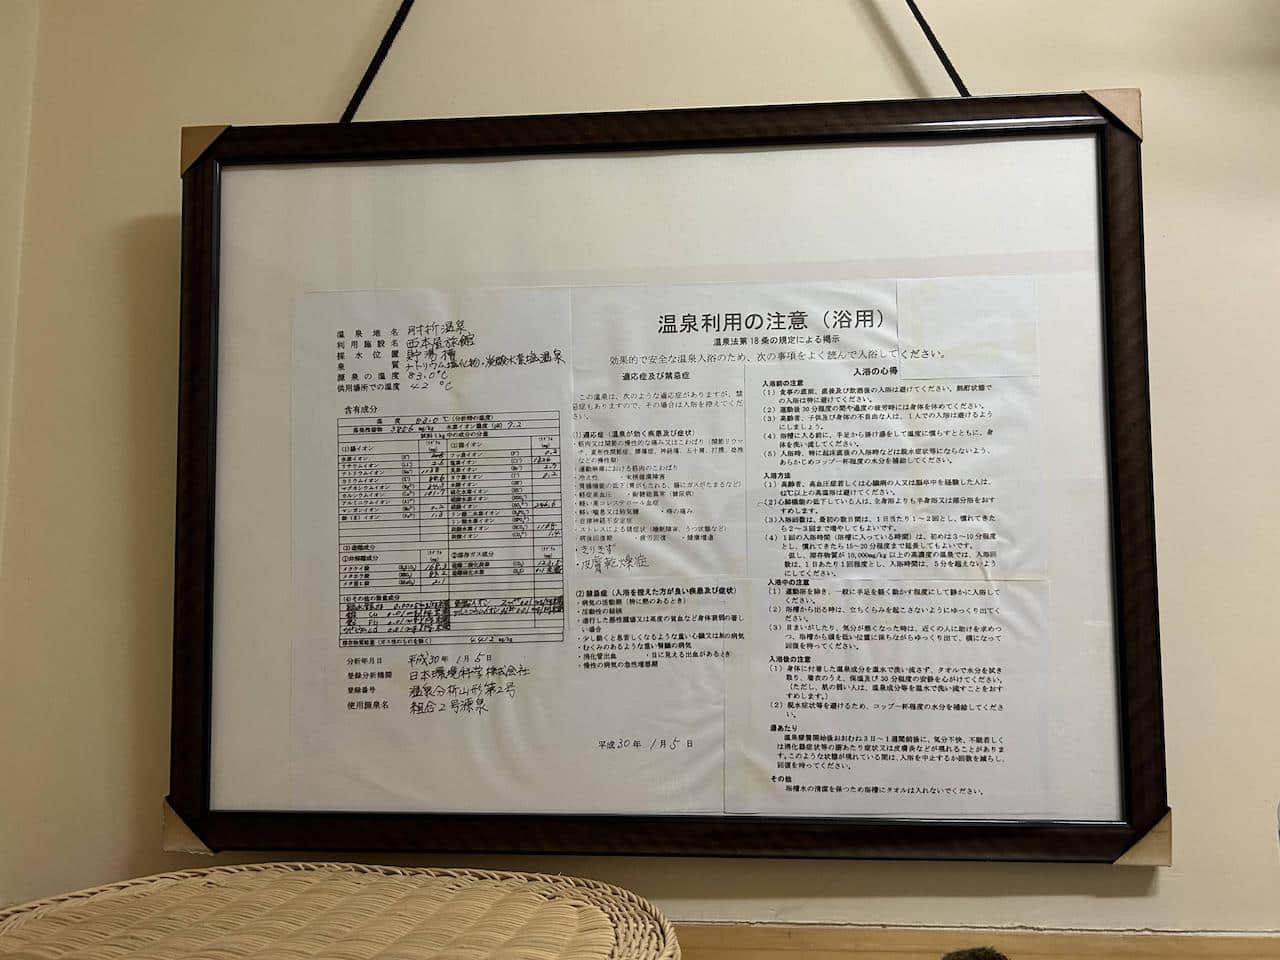 温泉地名 肘折温泉
利用施設名 西本屋旅館
採水位置 貯湯槽
泉質 ナトリウム塩化物・炭酸水素塩温泉
源泉の温度 83.0℃
供用場所での温度 42 ℃
含有成分
温度 83.0 ℃ (分析時の温度)
蒸発残留物 mg/kg 水素イオン濃度 (pH) 7.2
試料1kg中の成分の分量
(1)陽イオン (2)陰イオン
(3)遊離成分
①非解離成分 ②溶存ガス成分
メタケイ酸 168.3
メタホウ酸
2.1
(4)その他の微量成分
4.412 mg/kg
分析年月日 平成30年1月5日
登録分析機関 日本環境科学株式会社
登録番号 温泉分析山形第2号
使用源泉名 組合2号源泉
温泉利用の注意（浴用）
温泉法第18条の規定による掲示
効果的で安全な温泉入浴のため、次の事項をよく読んで入浴してください。
適応症及び禁忌症
この温泉は、次のような適応症がありますが、禁
忌症もありますので、その場合は入浴を控えてくだ
さい。
(1)適応症（温泉が効く疾患及び症状）
・筋肉又は関節の慢性的な痛み又はこわばり（関節リウマ
チ、変形性関節症、腰痛症、神経痛、五十肩、打撲、捻挫
などの慢性期）
・運動麻痺における筋肉のこわばり
・冷え性 ・末梢循環障害
・胃腸機能の低下（胃がもたれる、腸にガスがたまるなど）
・軽症高血圧 ・耐糖能異常（糖尿病）
・軽い高コレステロール血症
・軽い喘息又は肺気腫 ・痔の痛み
・自律神経不安定症
・ストレスによる諸症状（睡眠障害、うつ状態など）
・病後回復期 ・疲労回復 ・健康増進
・きりきず
・皮膚乾燥症
(2)禁忌症（入浴を控えた方が良い疾患及び症状）
・病気の活動期（特に熱のあるとき）
・活動性の結核
・進行した悪性腫瘍又は高度の貧血など身体衰弱の著し
い場合
・少し動くと息苦しくなるような重い心臓又は肺の病気
・むくみのあるような重い腎臓の病気
・消化管出血 ・目に見える出血があるとき
・慢性の病気の急性増悪期
平成30年1月5日
入浴の心得
入浴前の注意
(1) 食事の直前、直後及び飲酒後の入浴は避けてください。酩酊状態で
の入浴は特に避けてください。
(2) 運動後30分程度の間や過度の疲労時には身体を休めてください。
(3) 高齢者、子供及び身体の不自由な人は、1人での入浴は避けるよう
にしましょう。
(4) 浴槽に入る前に、手足から掛け湯をして温度に慣らすとともに、身
体を洗い流してください。
(5) 入浴時、特に起床直後の入浴時などは脱水症状等にならないよう、
あらかじめコップ一杯程度の水分を補給してください。
入浴方法
(1) 高齢者、高血圧症若しくは心臓病の人又は脳卒中を経験した人は、
42℃以上の高温浴は避けてください。
(2)心肺機能の低下している人は、全身浴よりも半身浴又は部分浴をおす
すめします。
(3)入浴回数は、最初の数日間は、1日当たり1～2回とし、慣れてきた
ら2～3回まで増やしてもよいです。
(4) 1回の入浴時間（浴槽に入っている時間）は、初めは3～10分程度
とし、慣れてきたら15～20分程度まで延長してもよいです。
但し、溶存物質が10,000mg/kg以上の高濃度の温泉では、入浴回
数は、1日あたり1回程度とし、入浴時間は、5分を超えないよう
にしてください。
入浴中の注意
(1) 運動浴を除き、一般に手足を軽く動かす程度にして静かに入浴して
ください。
(2) 浴槽から出る時は、立ちくらみを起こさないようにゆっくり出てく
ださい。
(3) 目まいがしたり、気分が悪くなった時は、近くの人に助けを求めつ
つ、浴槽から頭を低い位置に保ちながらゆっくり出て、横になって
回復を待ってください。
入浴後の注意
(1) 身体に付着した温泉成分を温水で洗い流さず、タオルで水分を拭き
取り、着衣のうえ、保温及び30分程度の安静を心がけてください。
（ただし、肌の弱い人は、温泉成分等を温水で洗い流すことをおす
すめします。）
(2) 脱水症状等を避けるため、コップ一杯程度の水分を補給してくださ
い。
湯あたり
温泉療養開始後おおむね3日～1週間前後に、気分不快、不眠若しく
は消化器症状等の湯あたり症状又は皮膚炎などが現れることがありま
す。このような状態が現れている間は、入浴を中止するか回数を減らし、
回復を待ってください。
その他
浴槽水の清潔を保つため浴槽にタオルは入れないでください。